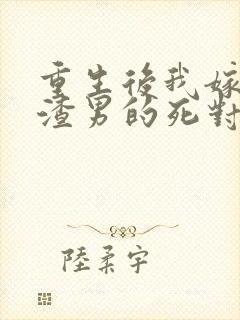 重生後我嫁
渣男的死對
陸柔宇